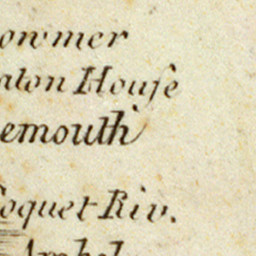 owmer
aton Houſe
emouth
oquet Riv.